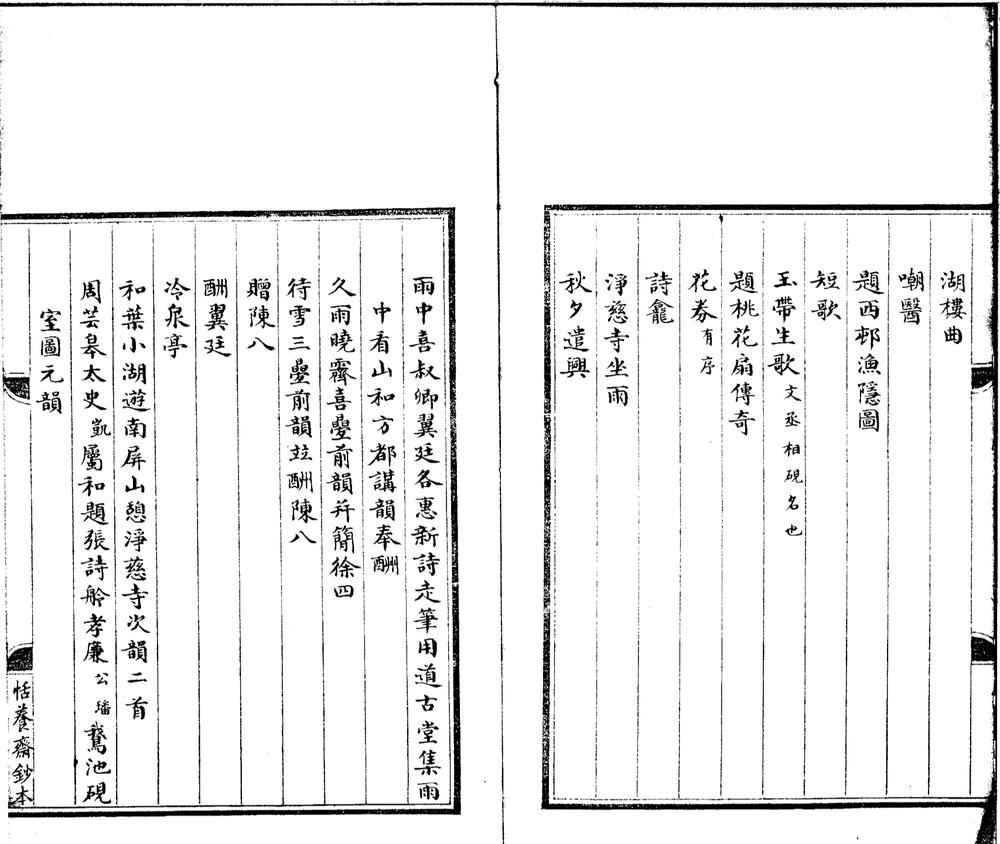 湖樓曲
嘲醫
題西邨漁隱圖
短歌
玉帶生歌文丞相硯名也
題桃花扇傳奇
花券有序
詩龕
淨慈寺坐雨
秋夕遣興
雨中喜叔卿翼廷各惠新詩走筆用道古堂集雨
中看山和方都講韻奉酬
久雨曉霽喜疊前韻幷簡徐四
待雪三疊前韻竝酬陳八
贈陳八
酬翼廷
冷泉亭
和葉小湖遊南屏山憩淨慈寺次韻二首
周芸皋太史凱屬和題張詩舲孝廉公璠鵞池硯
室圖元韻
恬養齋鈔本